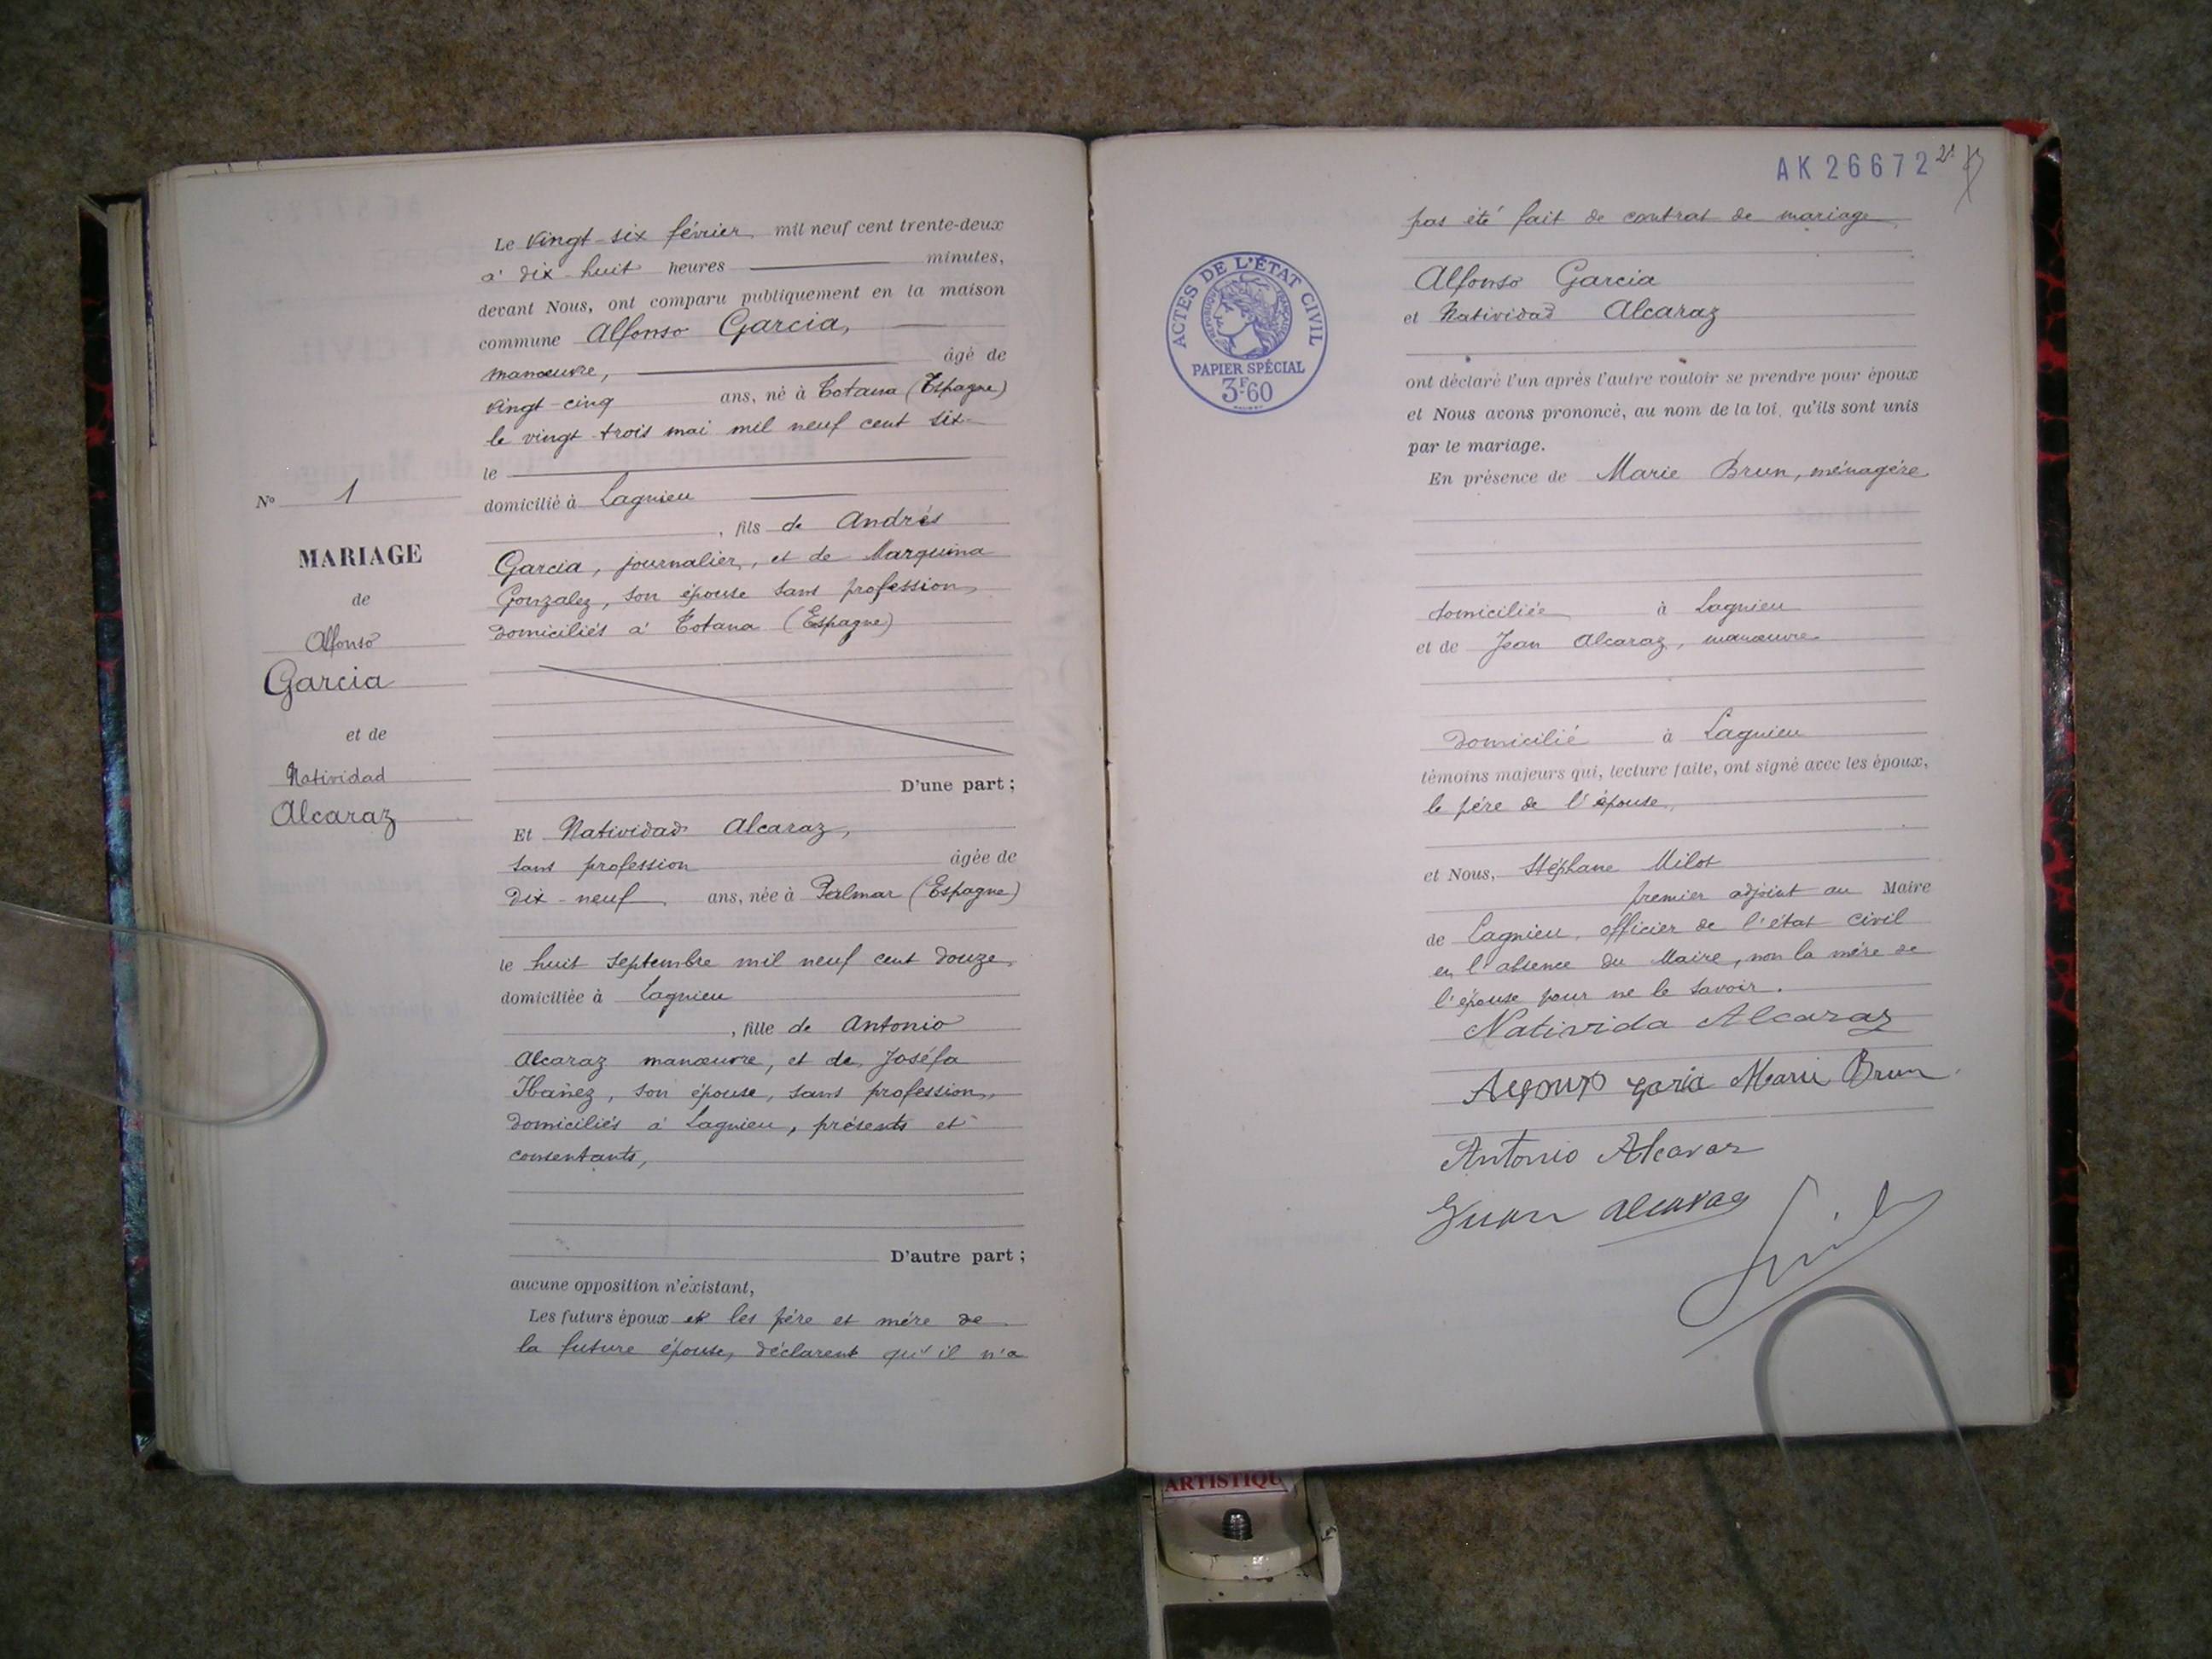 Le vingt-six février mil neuf cent trente-deux
à dix-huit heures minutes,
devant Nous, ont comparu publiquement en la maison
commune Alfonso Garcia,
manœuvre, âgé de
vingt-cinq ans, né à Totana (Espagne)
le vingt-trois mai mil neuf cent six
le
domicilié à Lagnieu
, fils de Andrés
Garcia, journalier, et de Marquina
Gonzalez, son épouse sans profession,
domiciliés à Totana (Espagne)
D'une part ;
Et Natividad Alcaraz,
sans profession âgée de
dix-neuf ans, née à Palmar (Espagne)
le huit septembre mil neuf cent douze
domiciliée à Lagnieu
, fille de Antonio
Alcaraz manœuvre, et de Joséfa
Ibañez, son épouse, sans profession,
domiciliés à Lagnieu, présents et
consentants,
D'autre part ;
aucune opposition n'existant,
Les futurs époux et les père et mère de
la future épouse, déclarent qu'il n'a
N° 1
MARIAGE
de
Alfonso
Garcia
et de
Natividad
Alcaraz
AK 26672
pas été fait de contrat de mariage
ACTES DE L'ÉTAT CIVIL
RÉPUBLIQUE FRANÇAISE
PAPIER SPÉCIAL
3F60
Alfonso Garcia
et Natividad Alcaraz
ont déclaré l'un après l'autre vouloir se prendre pour époux
et Nous avons prononcé, au nom de la loi, qu'ils sont unis
par le mariage.
En présence de Marie Brun, ménagère
domiciliée à Lagnieu
et de Jean Alcaraz, manœuvre
domicilié à Lagnieu
témoins majeurs qui, lecture faite, ont signé avec les époux,
le père de l'épouse,
et Nous, Stéphane Milot
premier adjoint au Maire
de Lagnieu, officier de l'état civil
en l'absence du Maire, non la mère de
l'épouse pour ne le savoir.
Nativida Alcaraz
Marie Brun
Antonio Alcaraz
Juan Alcaraz
ARTISTIQU